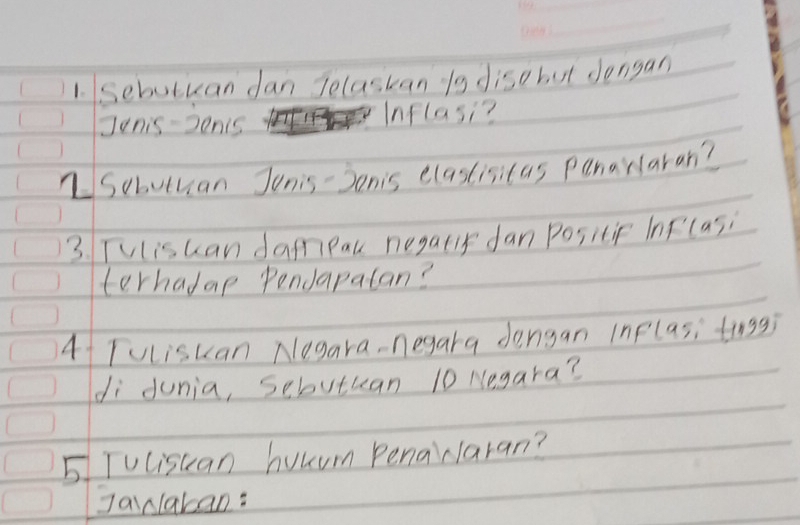 1. Sebutkan dan Jelaskan yg disebut dengan
Jenis-Jenis Inflasi?
2 Sebutkan Jenis-Jenis elastisitas Penawaran?
3. Tuliskan dampak negatif dan Positif Inflasi
terhadap Pendapatan?
4. Tuliskan Negara-negara dengan Inflasi tinggi
di dunia, Sebutkan 10 Negara?
5. Tuliskan hukum Penawaran?
Jawaban: